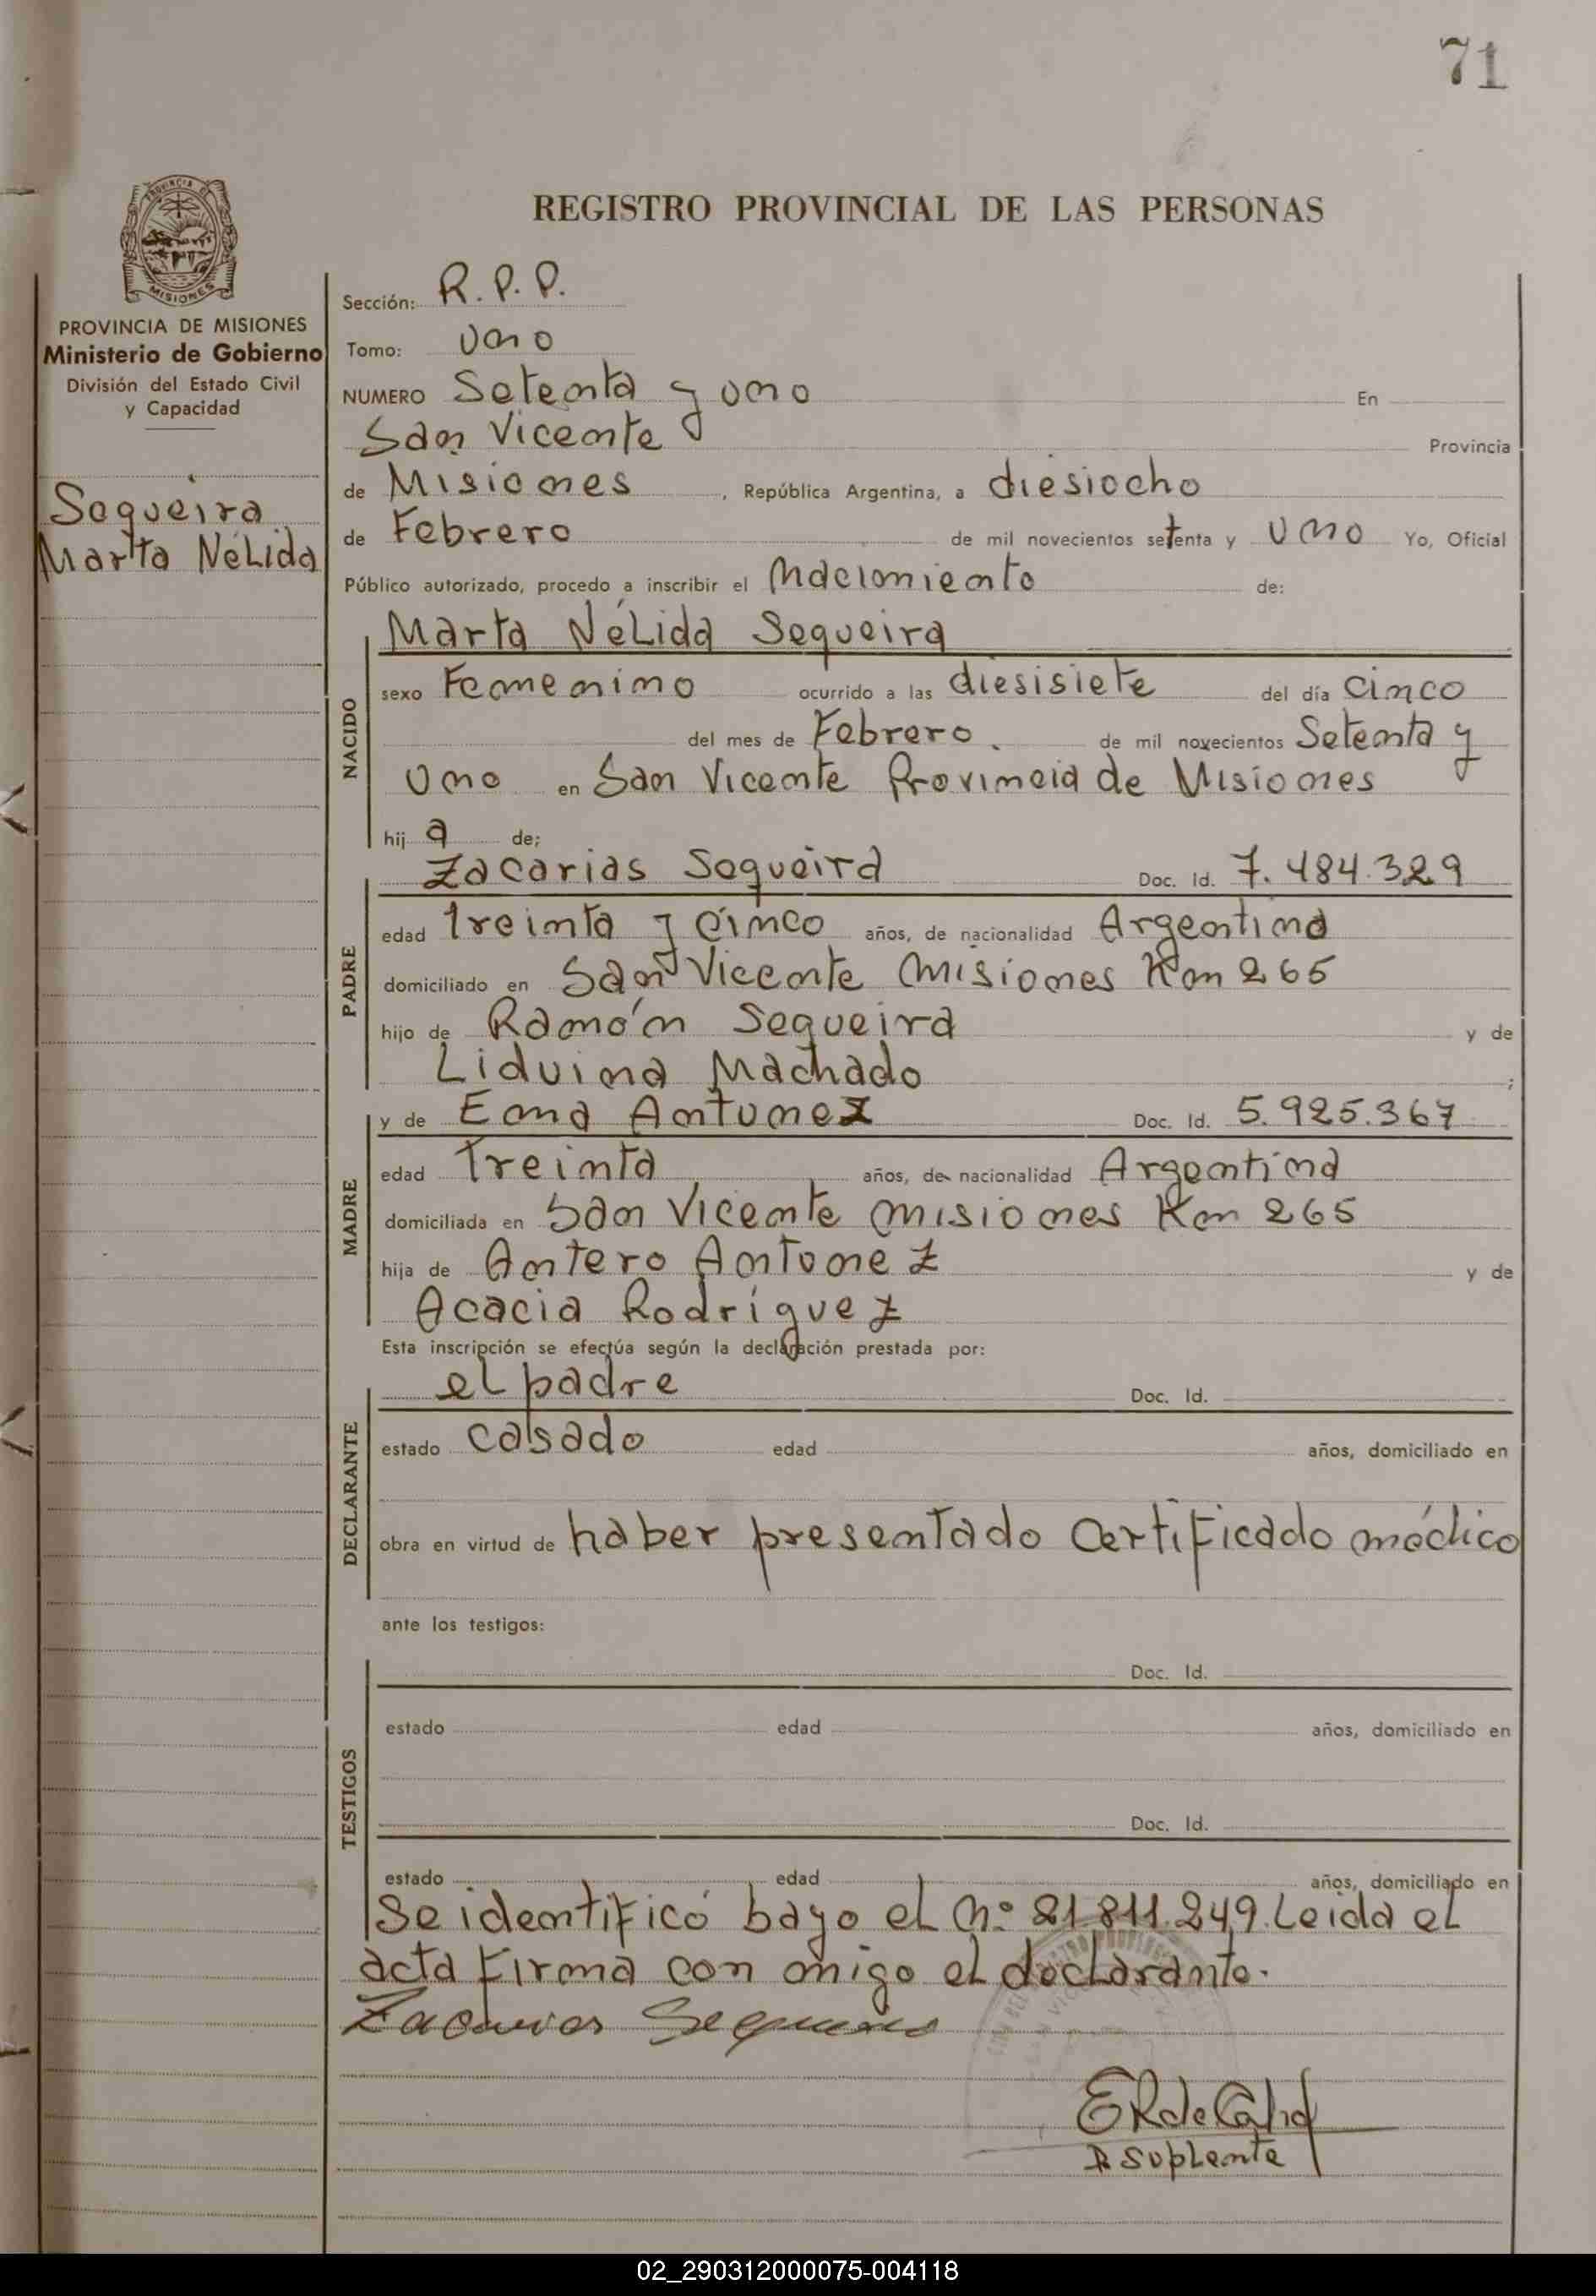 71
REGISTRO PROVINCIAL DE LAS PERSONAS
MISIONES
PROVINCIA DE MISIONES
Ministerio de Gobierno
División del Estado Civil
y Capacidad
Sequeira
Marta Nélida
Sección: R. P. P.
Tomo: uno
NUMERO Setenta y uno En
San Vicente Provincia
de Misiones, República Argentina, a diesiocho
de Febrero de mil novecientos setenta y uno Yo, Oficial
Público autorizado, procedo a inscribir el nacimiento de:
NACIDO
Marta Nélida Sequeira
sexo Femenino ocurrido a las diesisiete del día cinco
del mes de Febrero. de mil novecientos Setenta y
uno en San Vicente Provincia de Misiones
hij a de;
PADRE
Zacarias Sequeira Doc. Id. 7.484.329
edad treinta y cinco años, de nacionalidad Argentina
domiciliado en San Vicente Misiones Km 265
hijo de Ramón Sequeira y de
Liduina Machado ;
MADRE
y de Ema Antunez Doc. Id. 5.925.367
edad Treinta años, de nacionalidad Argentina
domiciliada en San Vicente misiones Km 265
hija de Antero Antunez y de
Acacia Rodríguez
Esta inscripción se efectúa según la declaración prestada por:
DECLARANTE
el padre Doc. Id.
estado casado edad años, domiciliado en
obra en virtud de haber presentado Certificado médico
ante los testigos:
TESTIGOS
Doc. Id.
estado edad años, domiciliado en
Doc. Id.
estado edad años, domiciliado en
Se identificó bayo el n.º 21.811.249. Leida el
acta firma con migo el declarante.
Zacarias Sequeira
Suplente
02_290312000075-004118